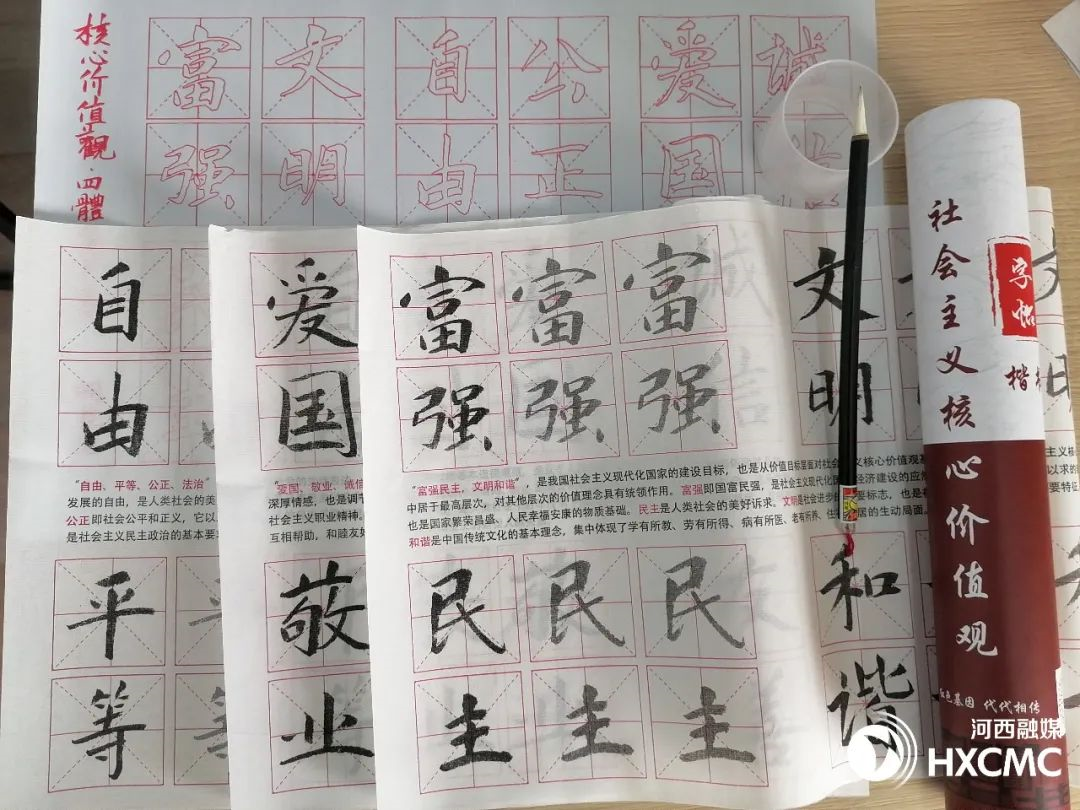 核心价值觀·四體
富 文 自 公 爱 诚
强 明 由 正 国
自
由
“自由、平等、公正、法治”
发展的自由，是人类社会的美
公正即社会公平和正义，它以
是社会主义民主政治的基本要
平
等
爱
国
“爱国、敬业、诚信
深厚情感，也是调节
社会主义职业精神。
互相帮助，和睦友好
敬
业
富 富 富 文
强 强 强 明
“富强民主，文明和谐”，是我国社会主义现代化国家的建设目标，也是从价值目标层面对社会主义核心价值观基
中居于最高层次，对其他层次的价值理念具有统领作用。富强即国富民强，是社会主义现代化国家经济建设的应
也是国家繁荣昌盛、人民幸福安康的物质基础。民主是人类社会的美好诉求。文明是社会进步的重要标志，也是
和谐是中国传统文化的基本理念，集中体现了学有所教、劳有所得、病有所医、老有所养、住有所居的生动局面。
民 民 民 和
主 主 主 谐
社会主义核心价值观
字帖
楷
红色基因 代代相传
河西融媒
HXCMC